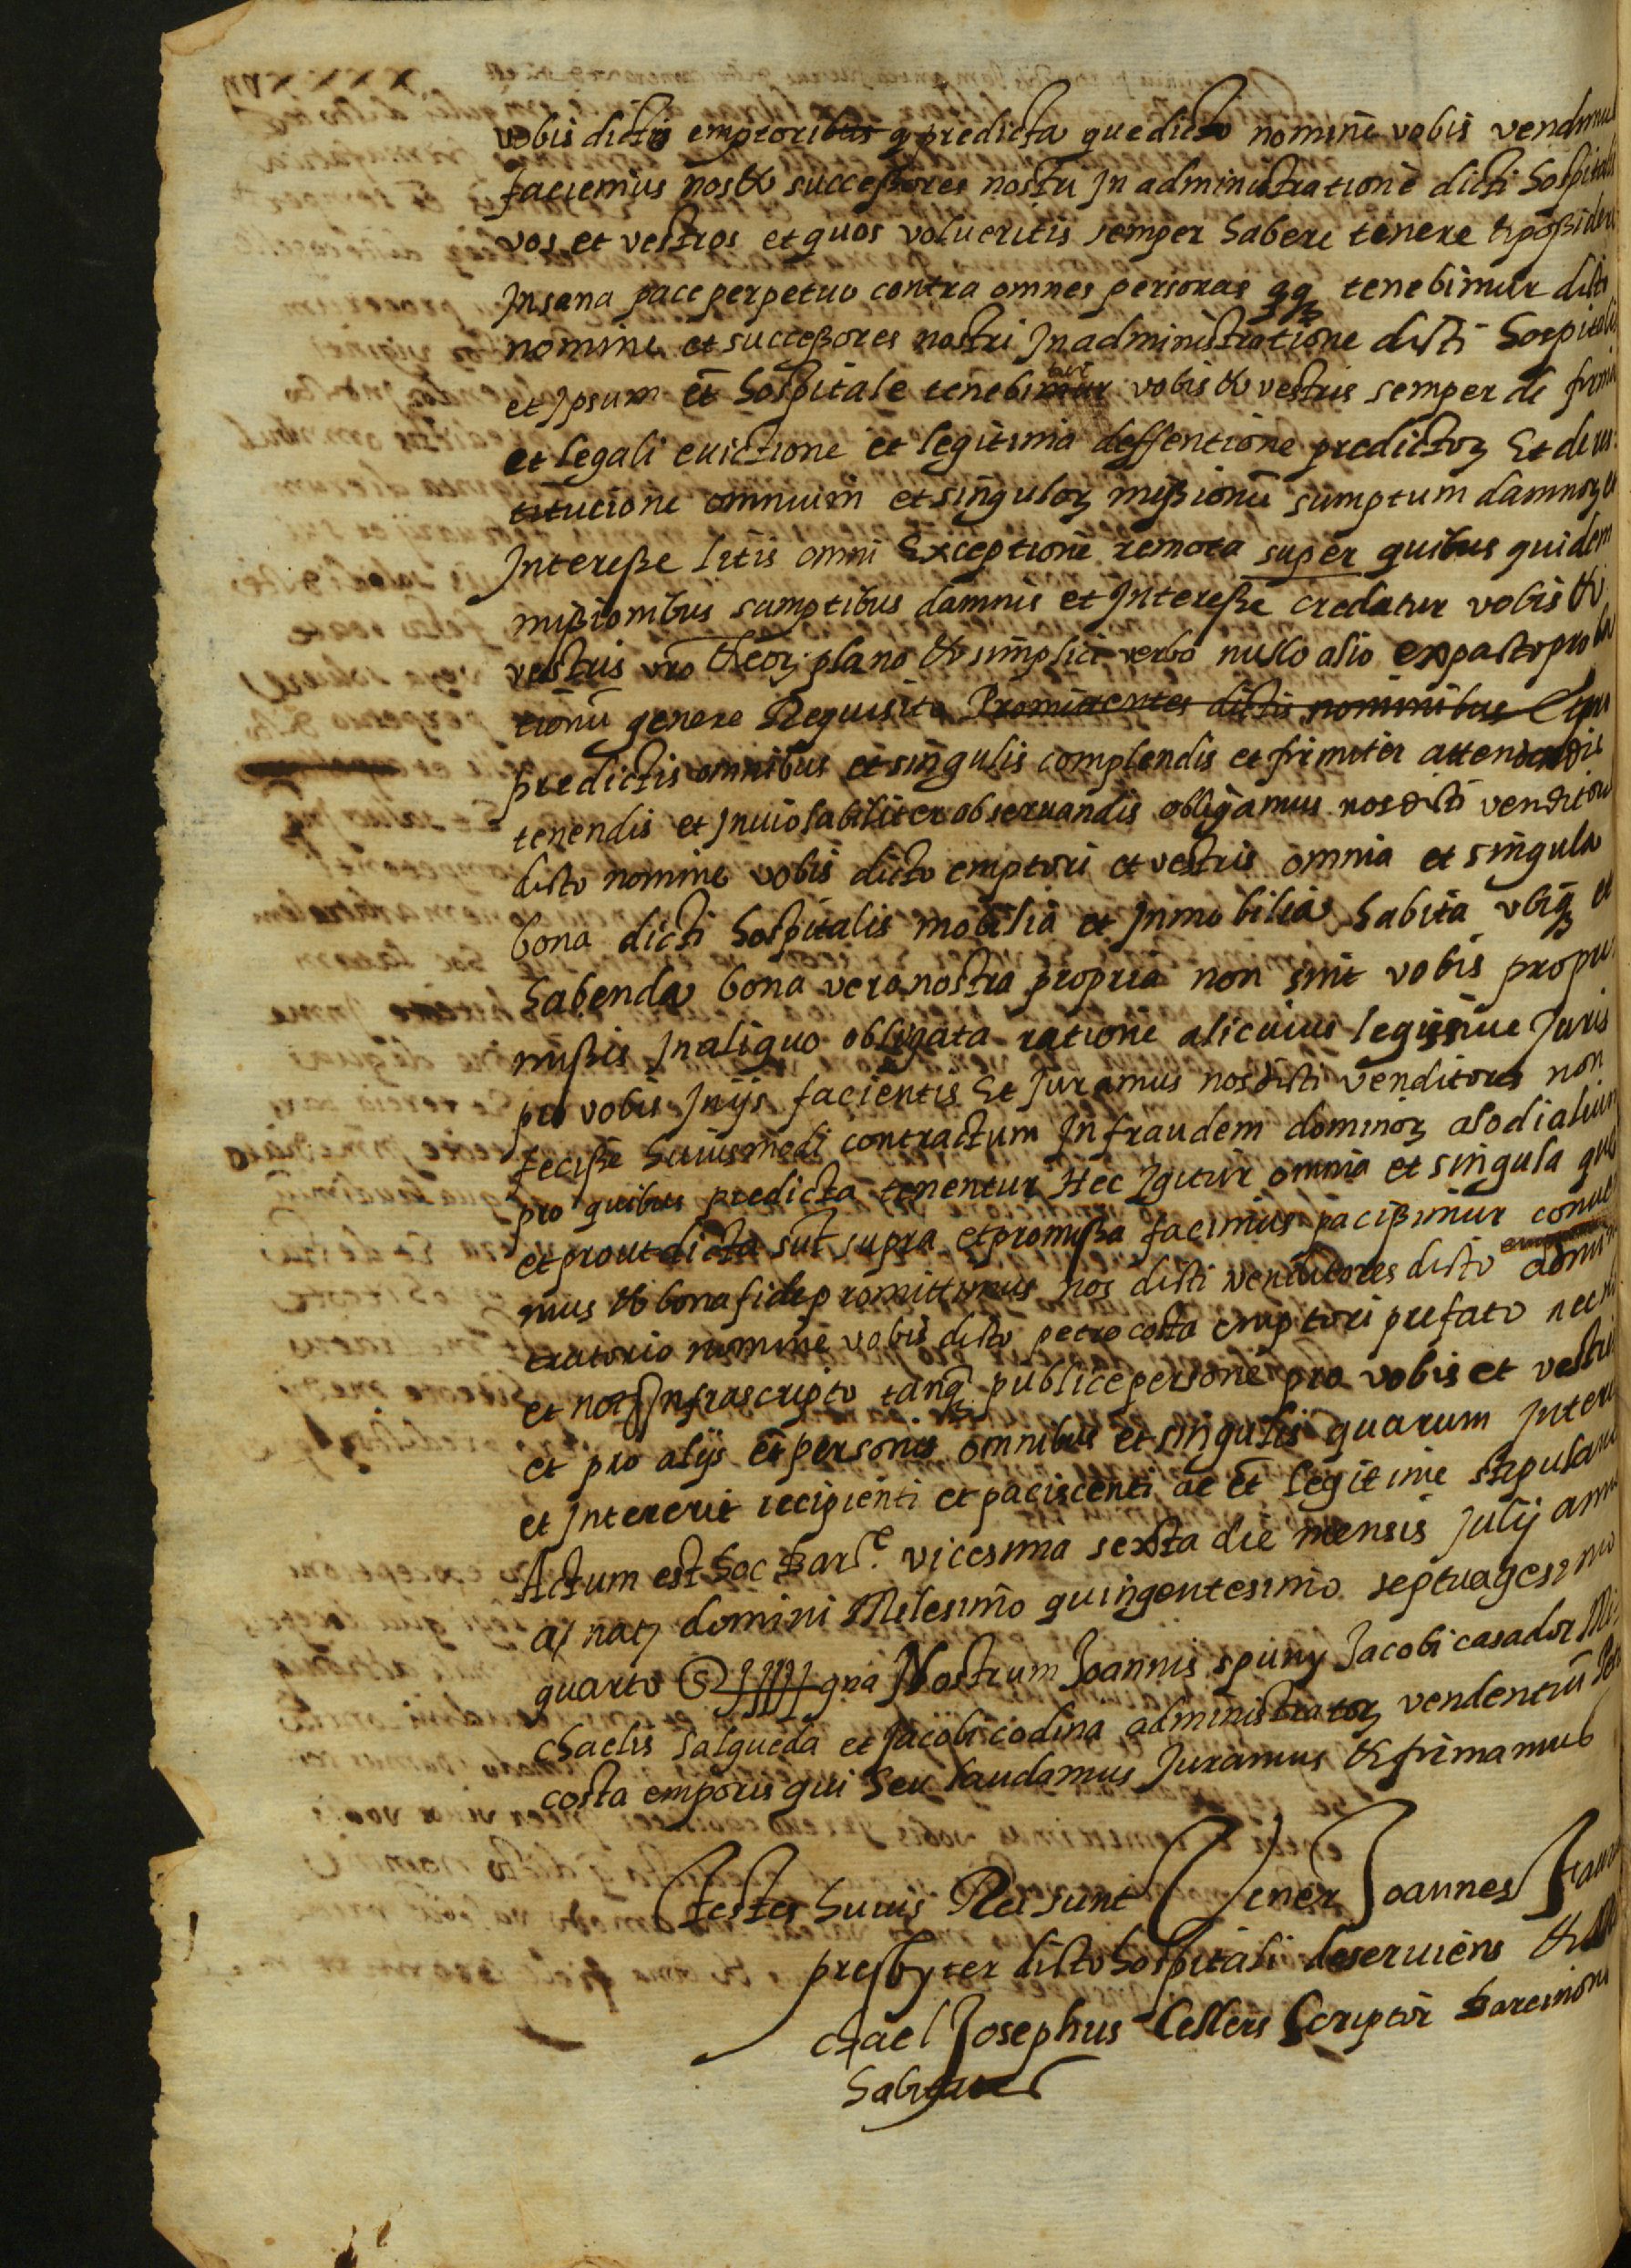 vobis dictis emptoribus q predicta que dicto nomine vobis vendimus
faciemus nos & successores nostri In administratione dicti hospitalis
vos et vestros et quos volueritis semper habere tenere & possidere
In sana pace perpetuo contra omnes personas qq tenebimur dicti
nomine et successores nostri In administratione dicti hospitalis
et Ipsum et hospitale tenebimur vobis & vestris semper de firma
et legali evictione et legitima deffentione predictorz Et de res
titucione omnium et singulorz missionu sumptum damnorz et
Interesse litis omni Exceptione remota super quibus quidem
missionibus sumptibus damnis et Interesse credatur vobis &
vestris vro & eorz plano & simplici verbo nullo alio expacto proba
tionu genere Requisito Promittentes dictis nominibus Et pro
predictis omnibus et singulis complendis et firmiter attendendis
tenendis et Inviolabiliter observandis obligamus nos dicti venditores
dicto nomine vobis dicto emptori et vestris omnia et singula
bona dicti hospitalis mobilia et Inmobilia habita ubiqz et
habenda bona vero nostra propria non sint vobis pro pre
missis In aliquo obligata ratione alicuius legis sive Juris
pro vobis In ijs facientis Et Juramus nos dicti venditores non
fecisse huiusmodi contractum In fraudem dominorz alodialium
pro quibus predicta tenentur Hec Igitur omnia et singula que
et prout dicta sut supra et promissa facimus pacissimur conve
mus & bona fide promittimus nos dicti venditores dicto admi
tratorio nomine vobis dicto petro costa emptori prefato nec n
et not Infrascripto tanqz publice persone pro vobis et vestris
et pro alijs et personis omnibus et singulis quarum Interest
et Intererit recipienti et paciscenti ac et legitime stipulanti
Actum est hoc Barne vicesima sexta die mensis Julij anno
a natz domini Milesimo quingentesimo septuagesimo
quarto Siggna Nostrum Joannis spuny Jacobi casador Mi
chaelis salgueda et Jacobi codina administratorz vendentiu
costa emporis qui hec laudamus Juramus & firmamus
Testes huius Rei sunt Vener Joannes
presbyter dicto hospitali deserviens & Mi
chael Josephus Cellers Scriptor barcinone
habitatores